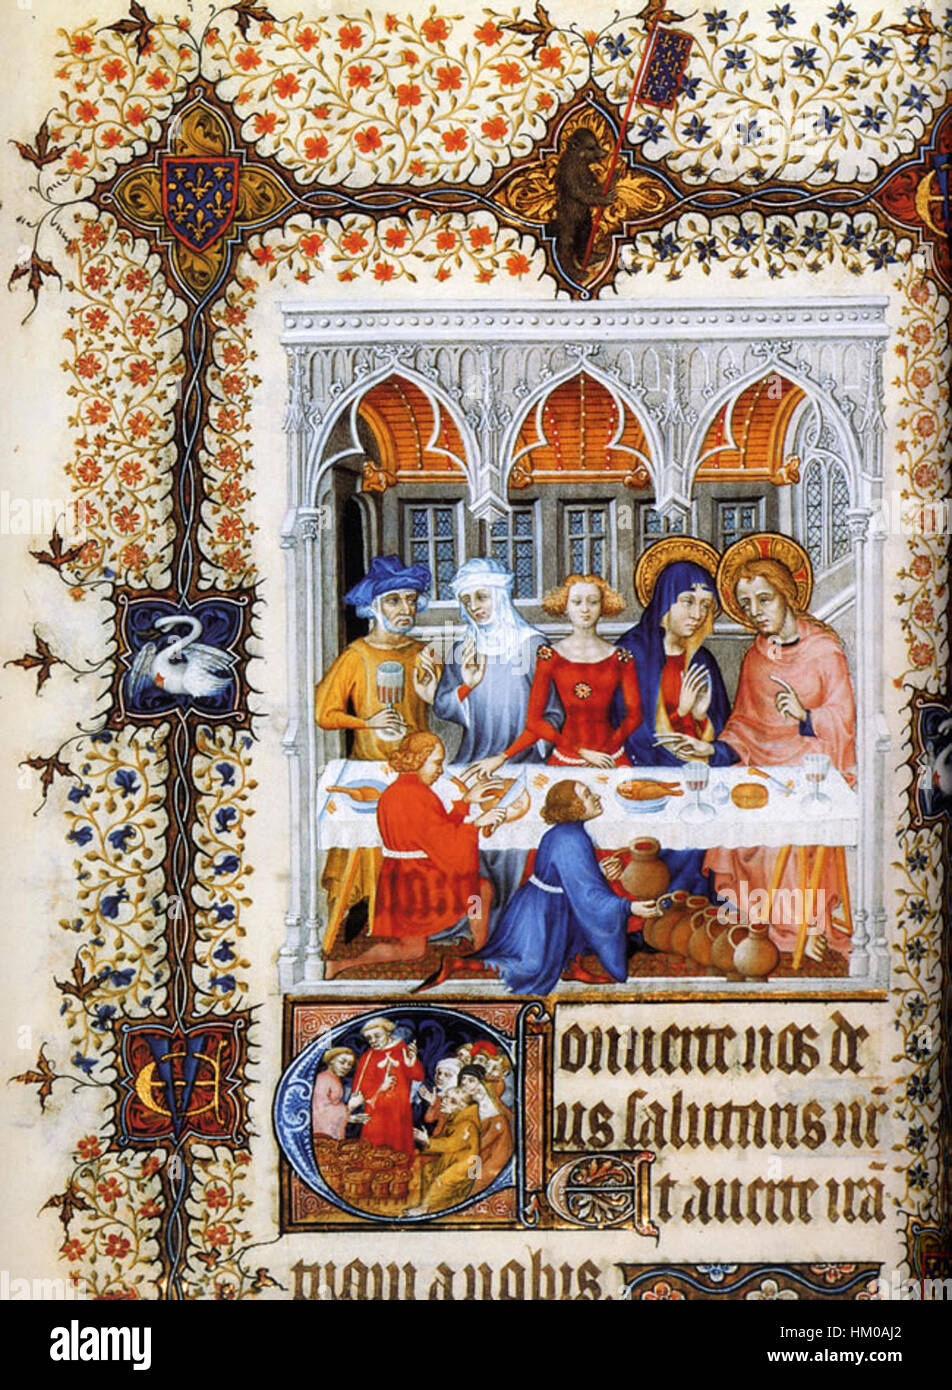 Conuerte nos de
us salutaris nr̄
Et auerte irā
tuam a nobis.
alamy
Image ID: HM0AJ2
www.alamy.com